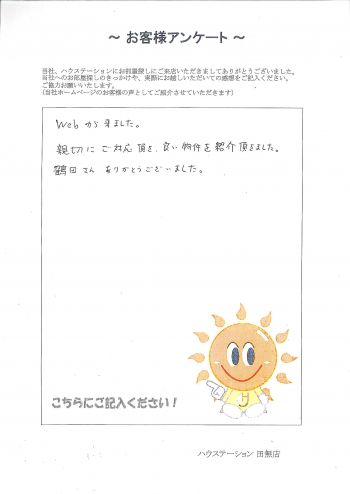 ～ お客様アンケート ～
当社、ハウステーションにお部屋探しにご来店いただきましてありがとうございました。
当社へのお部屋探しのきっかけや、実際にお越しいただいての感想をご記入ください。
ご協力お願いいたします。
（当社ホームページのお客様の声としてご紹介させていただきます）
Webから来ました。
親切にご対応頂き、良い物件を紹介頂きました。
鶴田さん ありがとうございました。
こちらにご記入ください！
ハウステーション 田無店